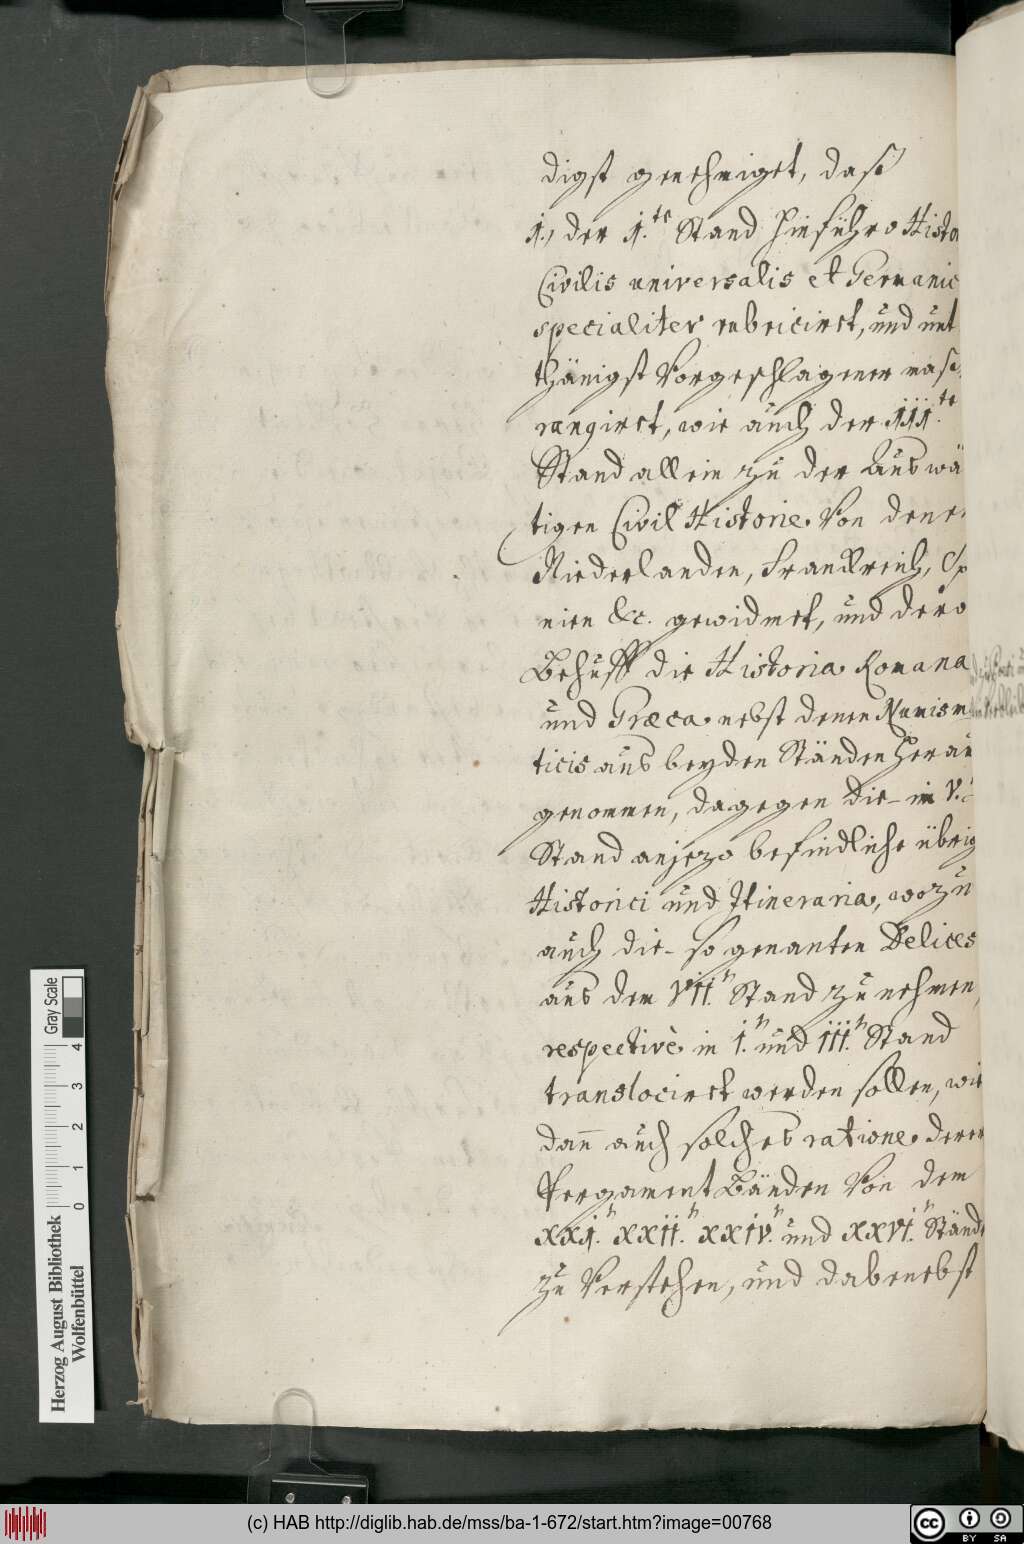 digst genehmiget, daß
1., der 1.te Stand hinführo Histo
Civilis universalis et Germanic
specialiter rubriciret, und unt
thänigst Vorgeschlagener maß
rangiret, wie auch der III.te
Stand allein zu der Auswä
tigen Civil Historie. Von denen
Niederlanden, Franckreich, Sp
nien &c. gewidmet, und dero
Behuff die Historia Romana
und Græca nebst denen Numism
ticis aus beyden Ständen herau
genommen, dagegen die im V.t
Stand anjezo befindliche übrig
Historici und Itineraria, wozu
auch die so genanten Delices
aus dem VII.n Stand zu nehmen,
respectivè in I.n und III.n Stand
translociret werden sollen, wie
dann auch solches ratione derer
Pergament Bänden Von dem
XXI.n XXII.n XXIV.n und XXVI.n Stände
zu Verstehen, und dabenebst
Herzog August Bibliothek
Wolfenbüttel
0 1 2 3 4
Gray Scale
(c) HAB http://diglib.hab.de/mss/ba-1-672/start.htm?image=00768
cc BY SA